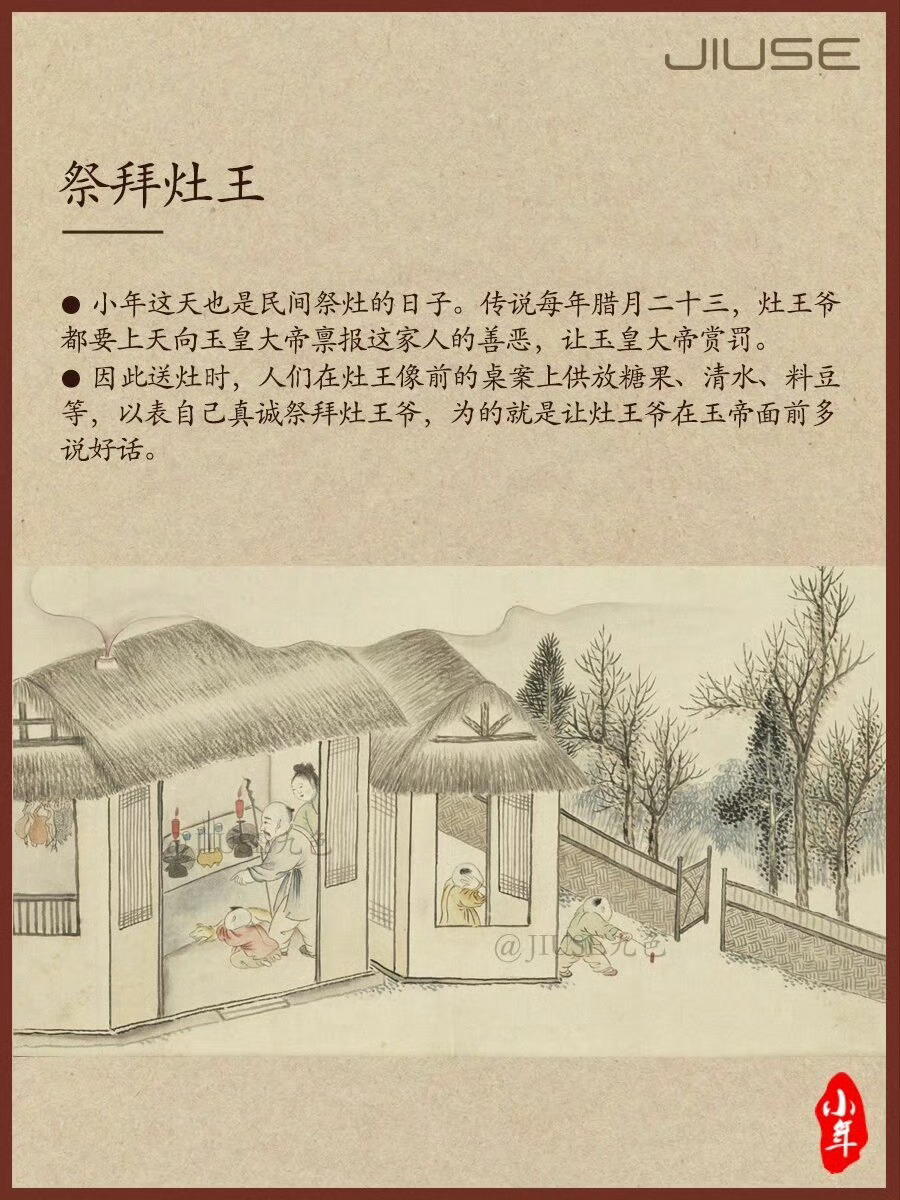 JIUSE
祭拜灶王
● 小年这天也是民间祭灶的日子。传说每年腊月二十三，灶王爷
都要上天向玉皇大帝禀报这家人的善恶，让玉皇大帝赏罚。
● 因此送灶时，人们在灶王像前的桌案上供放糖果、清水、料豆
等，以表自己真诚祭拜灶王爷，为的就是让灶王爷在玉帝面前多
说好话。
九色
@JIUSE九色
小年